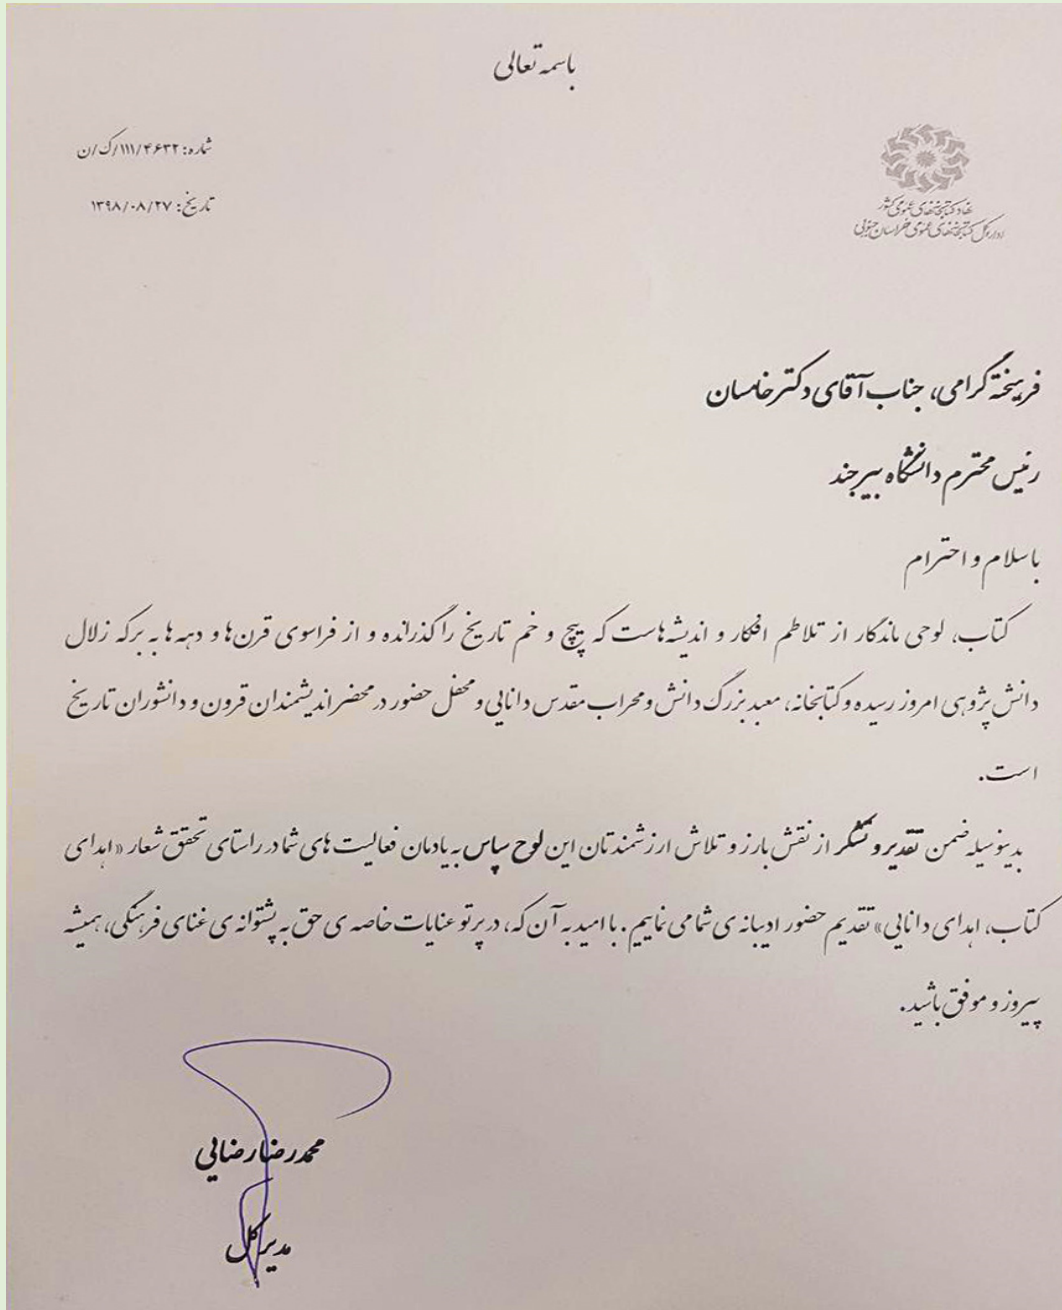 باسمه تعالی
شماره: ۱۱۱/۴۶۳۲/ک/ن
تاریخ: ۱۳۹۸/۰۸/۲۷
نهاد کتابخانه‌های عمومی کشور
اداره کل کتابخانه‌های عمومی خراسان جنوبی
فرهیخته گرامی، جناب آقای دکتر خامسان
رئیس محترم دانشگاه بیرجند
با سلام و احترام
کتاب، لوحی ماندگار از تلاطم افکار و اندیشه‌هاست که پیچ و خم تاریخ را گذرانده و از فراسوی قرن‌ها و دهه ها به برکه زلال
دانش پژوهی امروز رسیده و کتابخانه، معبد بزرگ دانش و محراب مقدس دانایی و محفل حضور در محضر اندیشمندان قرون و دانشوران تاریخ
است.
بدینوسیله ضمن تقدیر و تشکر از نقش بارز و تلاش ارزشمندتان این لوح سپاس به یادمان فعالیت های شما در راستای تحقق شعار «اهدای
کتاب، اهدای دانایی» تقدیم حضور ادیبانه ی شما می نماییم. با امید به آن که، در پرتو عنایات خاصه ی حق به پشتوانه ی غنای فرهنگی، همیشه
پیروز و موفق باشید.
محمدرضا رضایی
مدیر کل